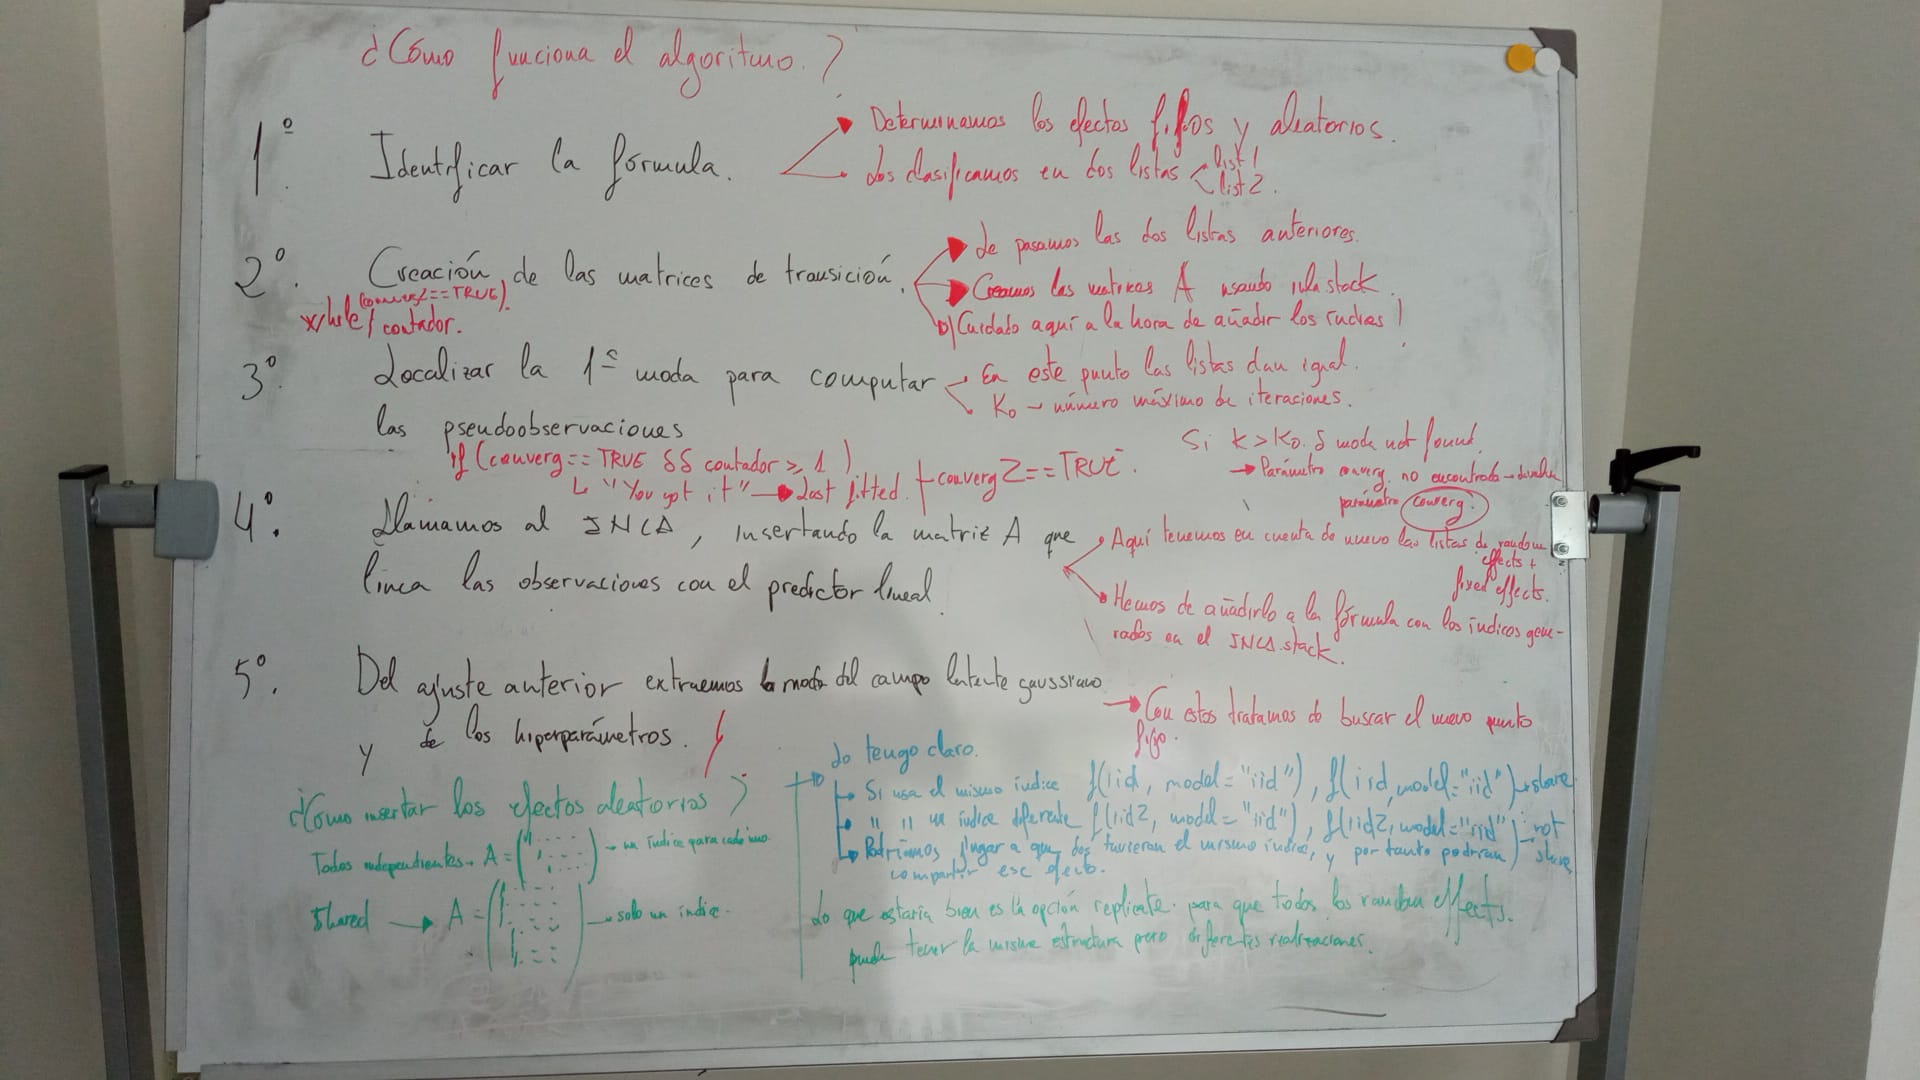 ¿Cómo funciona el algoritmo?
1º. Identificar la fórmula.
Determinamos los efectos fijos y aleatorios.
Los clasificamos en dos listas
list 1
list 2.
2º. Creación de las matrices de transición.
Le pasamos las dos listas anteriores.
Creamos las matrices A usando inla stack.
Cuidado aquí a la hora de añadir los índices!
(converg2==TRUE).
while / contador.
3º. Localizar la 1ª moda para computar
las pseudoobservaciones
En este punto las listas dan igual.
K0 → número máximo de iteraciones.
Si K>K0. & mode not found.
→ Parámetro converg. no encontrado →
parámetro converg.
if (converg==TRUE && contador ≥ 1)
↳ "You got it" → Last fitted. + converg2==TRUE.
4º. Llamamos al INLA, insertando la matriz A que
linca las observaciones con el predictor lineal.
Aquí tenemos en cuenta de nuevo las listas de random
effects +
fixed effects.
Hemos de añadirlo a la fórmula con los índices gene-
rados en el INLA.stack.
5º. Del ajuste anterior extraemos la moda del campo latente gaussiano
y de los hiperparámetros.
→ Con estos tratamos de buscar el nuevo punto
fijo.
¿Cómo insertar los efectos aleatorios?
Todos independientes. A = → un índice para cada uno
Shared → A = → solo un índice.
Lo tengo claro.
Si usa el mismo índice f(iid, model="iid"), f(iid, model="iid") → share
" " un índice diferente f(iid2, model="iid"), f(iid2, model="iid") → not
share
Podríamos jugar a que dos tuvieran el mismo índice, y por tanto podrían
compartir ese efecto.
Lo que estaría bien es la opción replicate. para que todos los random effects.
puede tener la misma estructura pero diferentes realizaciones.